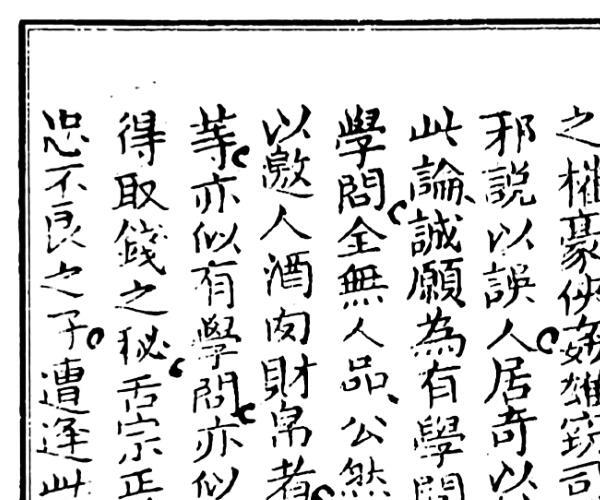 之權豪俠姦雄竊司
邪說以誤人居奇以
此論誠願為有學問
學問全無人品公然
以邀人酒肉財帛者
等亦似有學問亦似
得取錢之秘舌宗正
忠不良之子遭逢此